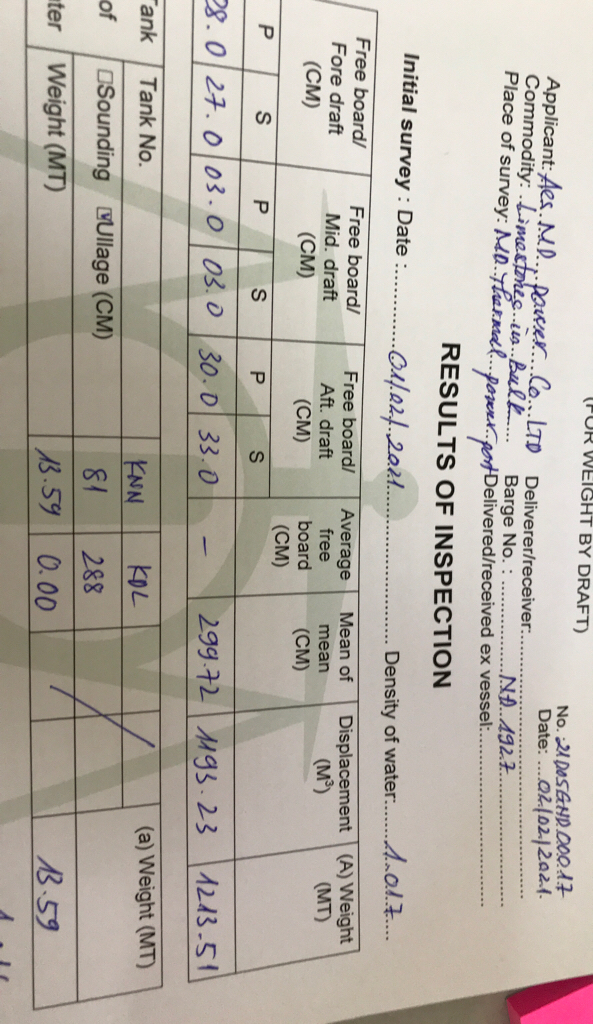 (FOR WEIGHT BY DRAFT)
No.: 21D05GND00017
Date: ...02/02/2021.
Applicant: AES. M.D. Power Co. LTD Deliverer/receiver:
Commodity: Limestones in Bulk Barge No. : ND 1927
Place of survey: MD Thermal power port Delivered/received ex vessel:
RESULTS OF INSPECTION
Initial survey : Date : 01/02/2021 Density of water: 1.017
Free board/ Fore draft (CM) Free board/ Mid. draft (CM) Free board/ Aft. draft (CM) Average free board (CM) Mean of mean (CM) Displacement (M³) (A) Weight (MT)
P S P S P S
28.0 27.0 03.0 03.0 30.0 33.0 - 299.72 1193.23 1213.51
Tank Tank No. KNN KDL (a) Weight (MT)
of □Sounding ☑Ullage (CM) 81 288
ter Weight (MT) 13.59 0.00 13.59